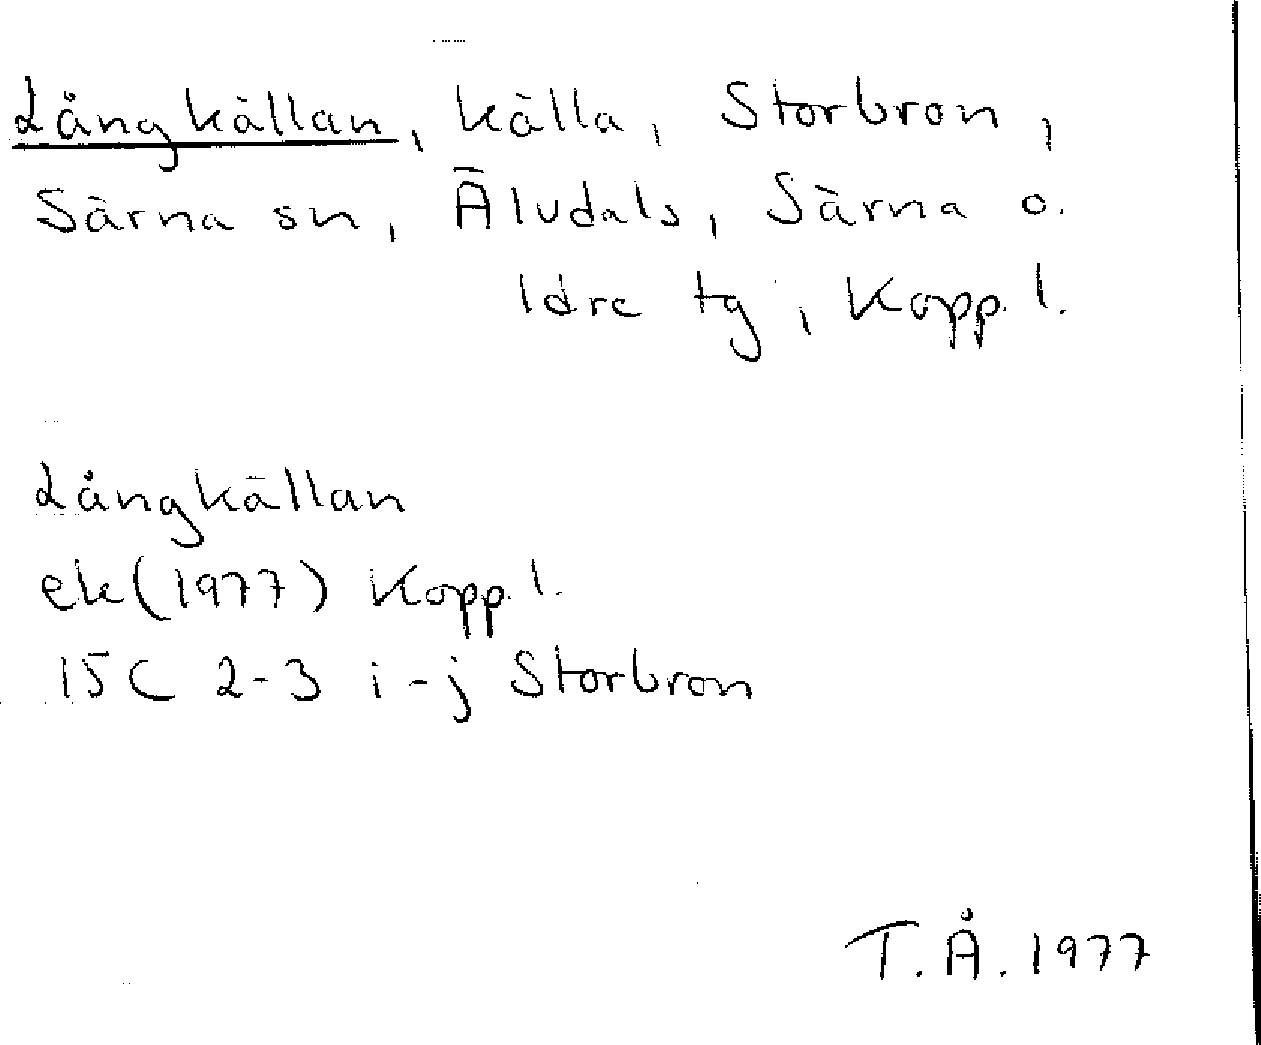 Långkällan, källa, Storbron,
Särna sn, Älvdals, Särna o.
Idre tg, Kopp. l.
Långkällan
ek (1977) Kopp. l.
15C 2-3 i-j Storbron
T.Å. 1977